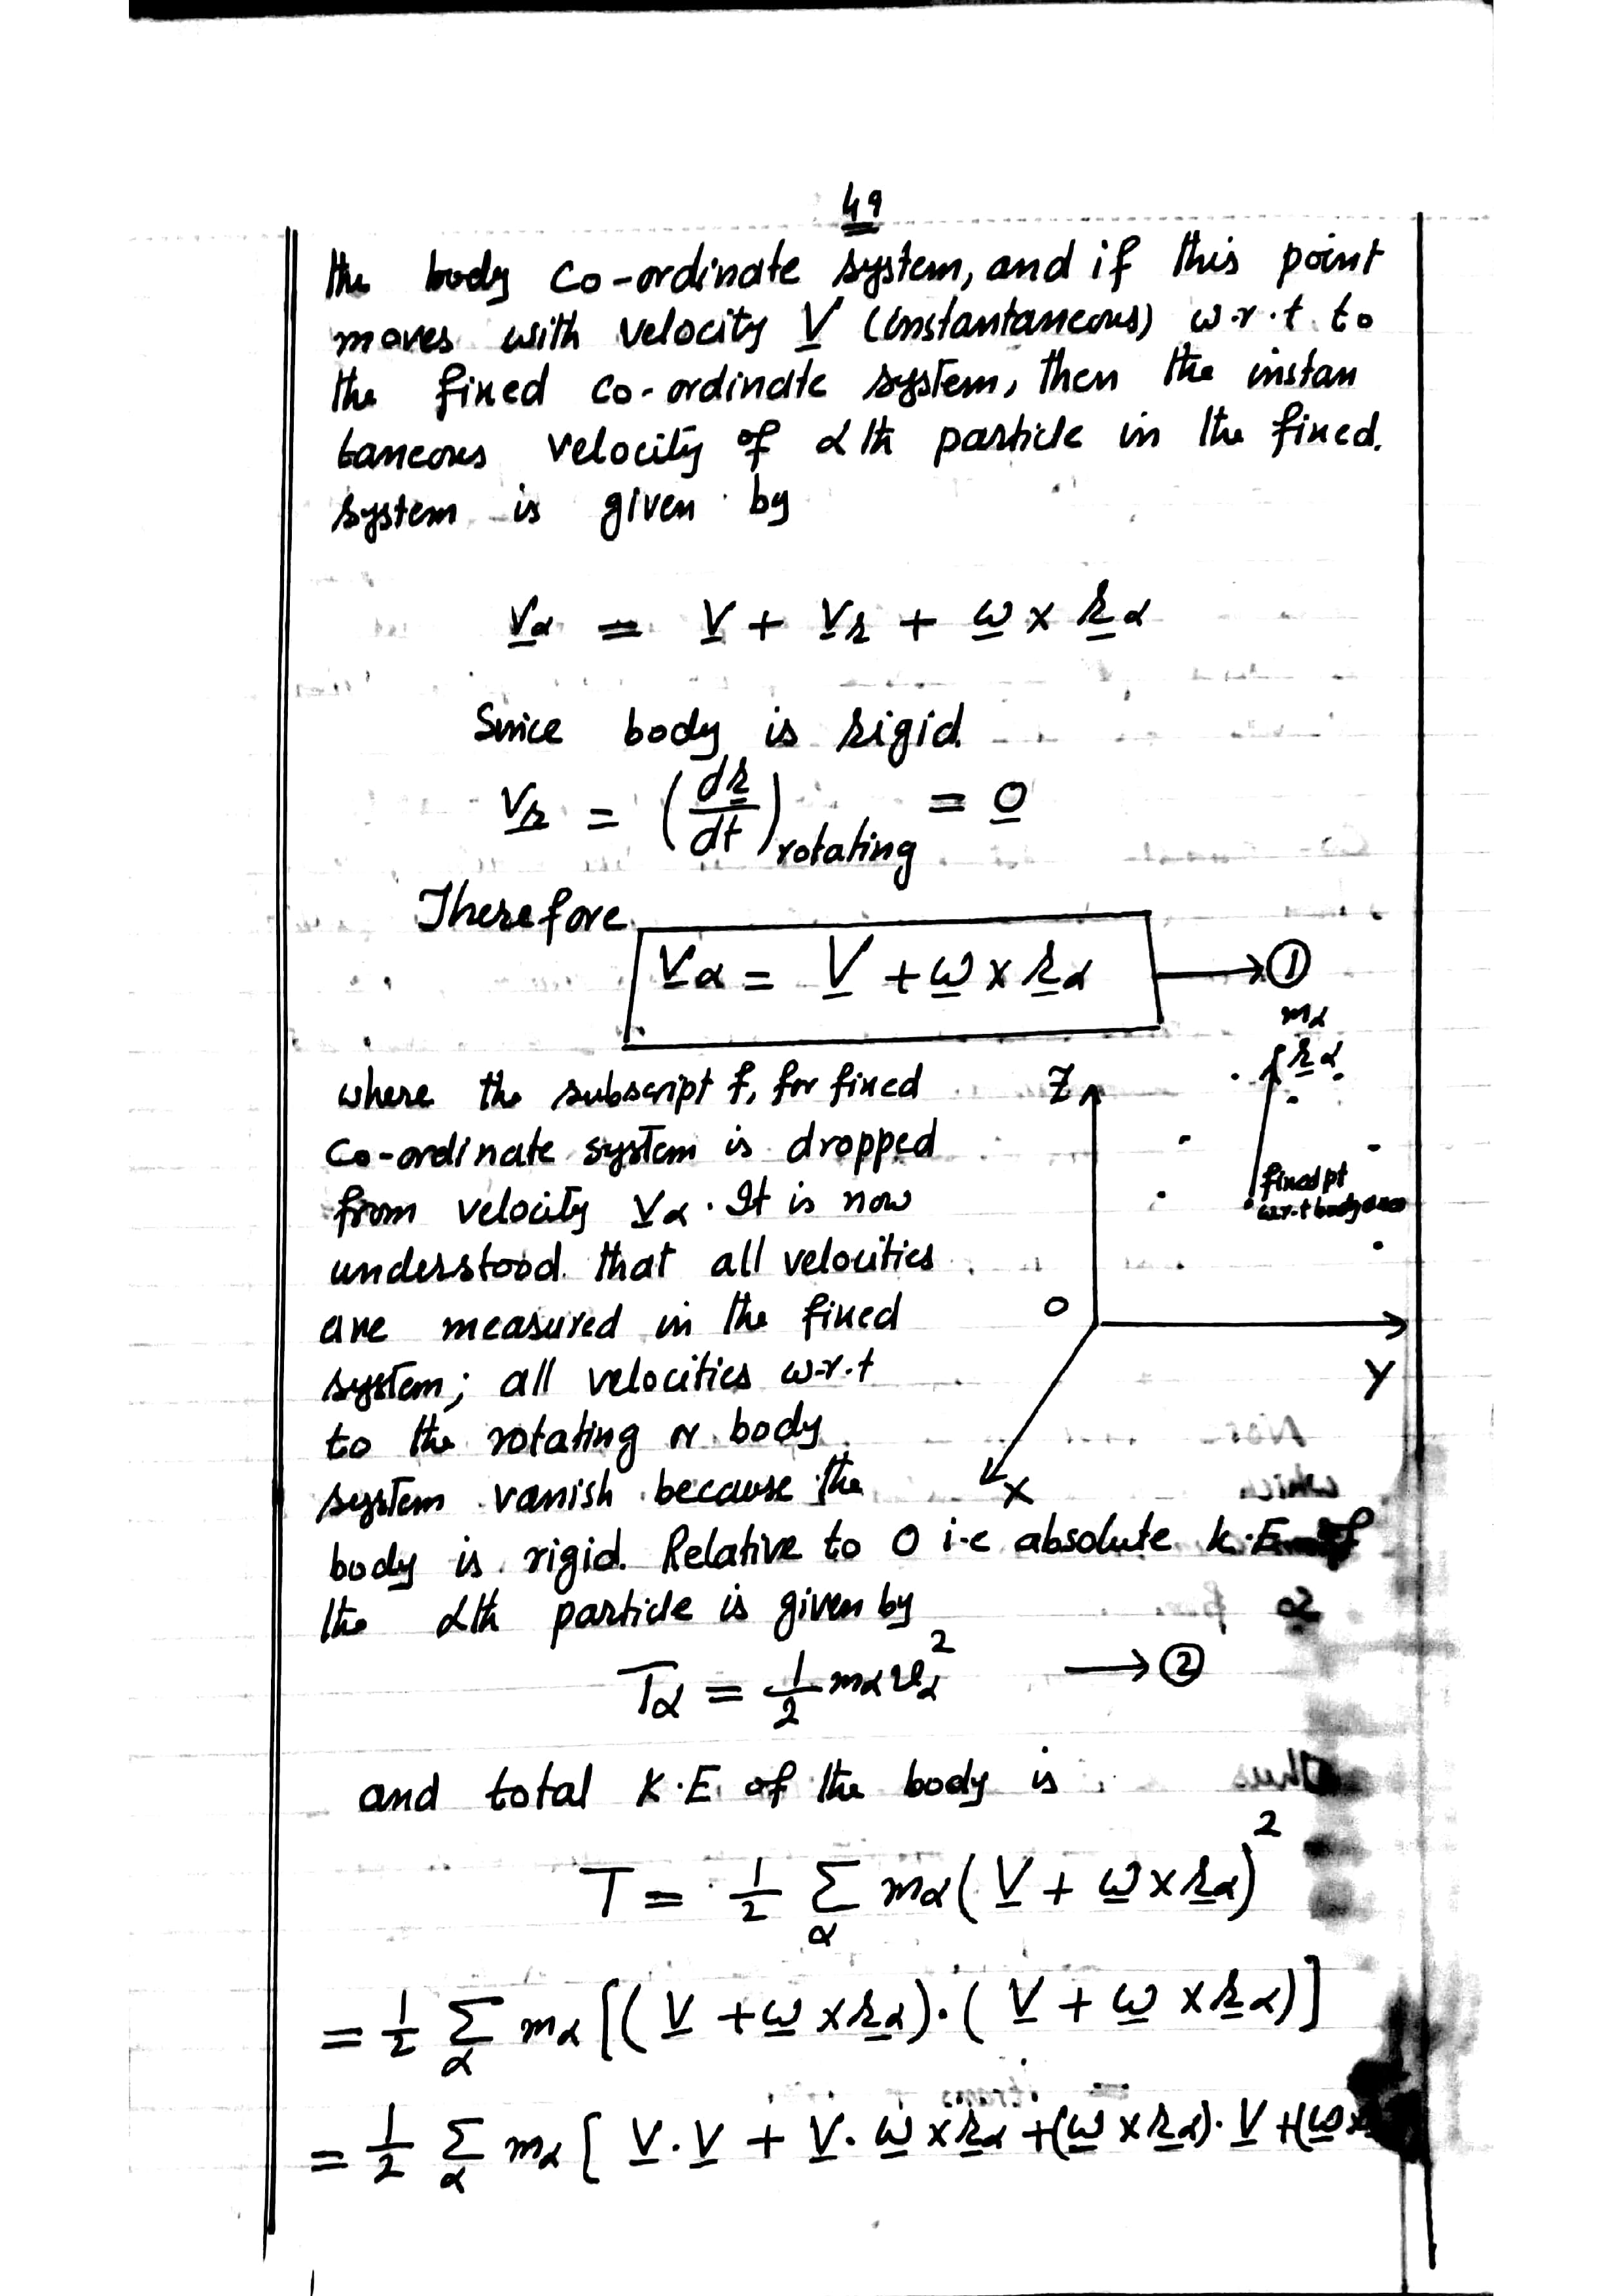 49
the body Co-ordinate system, and if this point
moves with velocity V (instantaneous) w.r.t. to
the fixed co-ordinate system, then the instan
taneous velocity of αth particle in the fixed.
system is given by
Vα = V + Vr + ω × rα
Since body is rigid
Vr = (dr/dt)rotating = 0
Therefore
Vα = V + ω × rα → ①
mα
rα
where the subscript f, for fixed
Co-ordinate system is dropped
from velocity Vα. It is now
understood that all velocities
are measured in the fixed
system; all velocities w.r.t
to the rotating or body
system vanish because the
Z
fixed pt
w.r.t body
O
Y
X
body is rigid. Relative to O i.e absolute K.E of
the αth particle is given by
Tα = 1/2 mα vα² → ②
and total K.E. of the body is
T = 1/2 Σα mα (V + ω × rα)²
= 1/2 Σα mα [(V + ω × rα).(V + ω × rα)]
= 1/2 Σα mα [V.V + V. ω × rα + (ω × rα). V + (ω ×